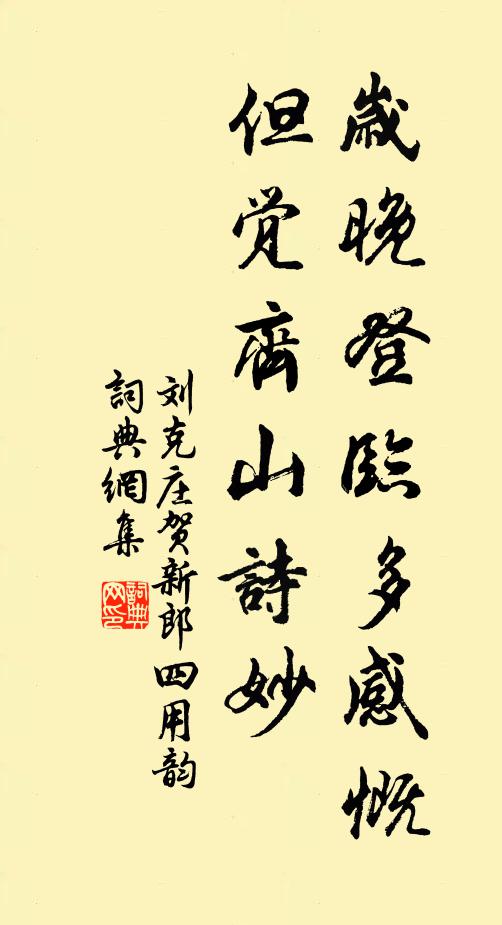 歲晚登臨多感慨
但觉齊山詩妙
刘克庄贺新郎四用韵
詞典網集
詞典网印